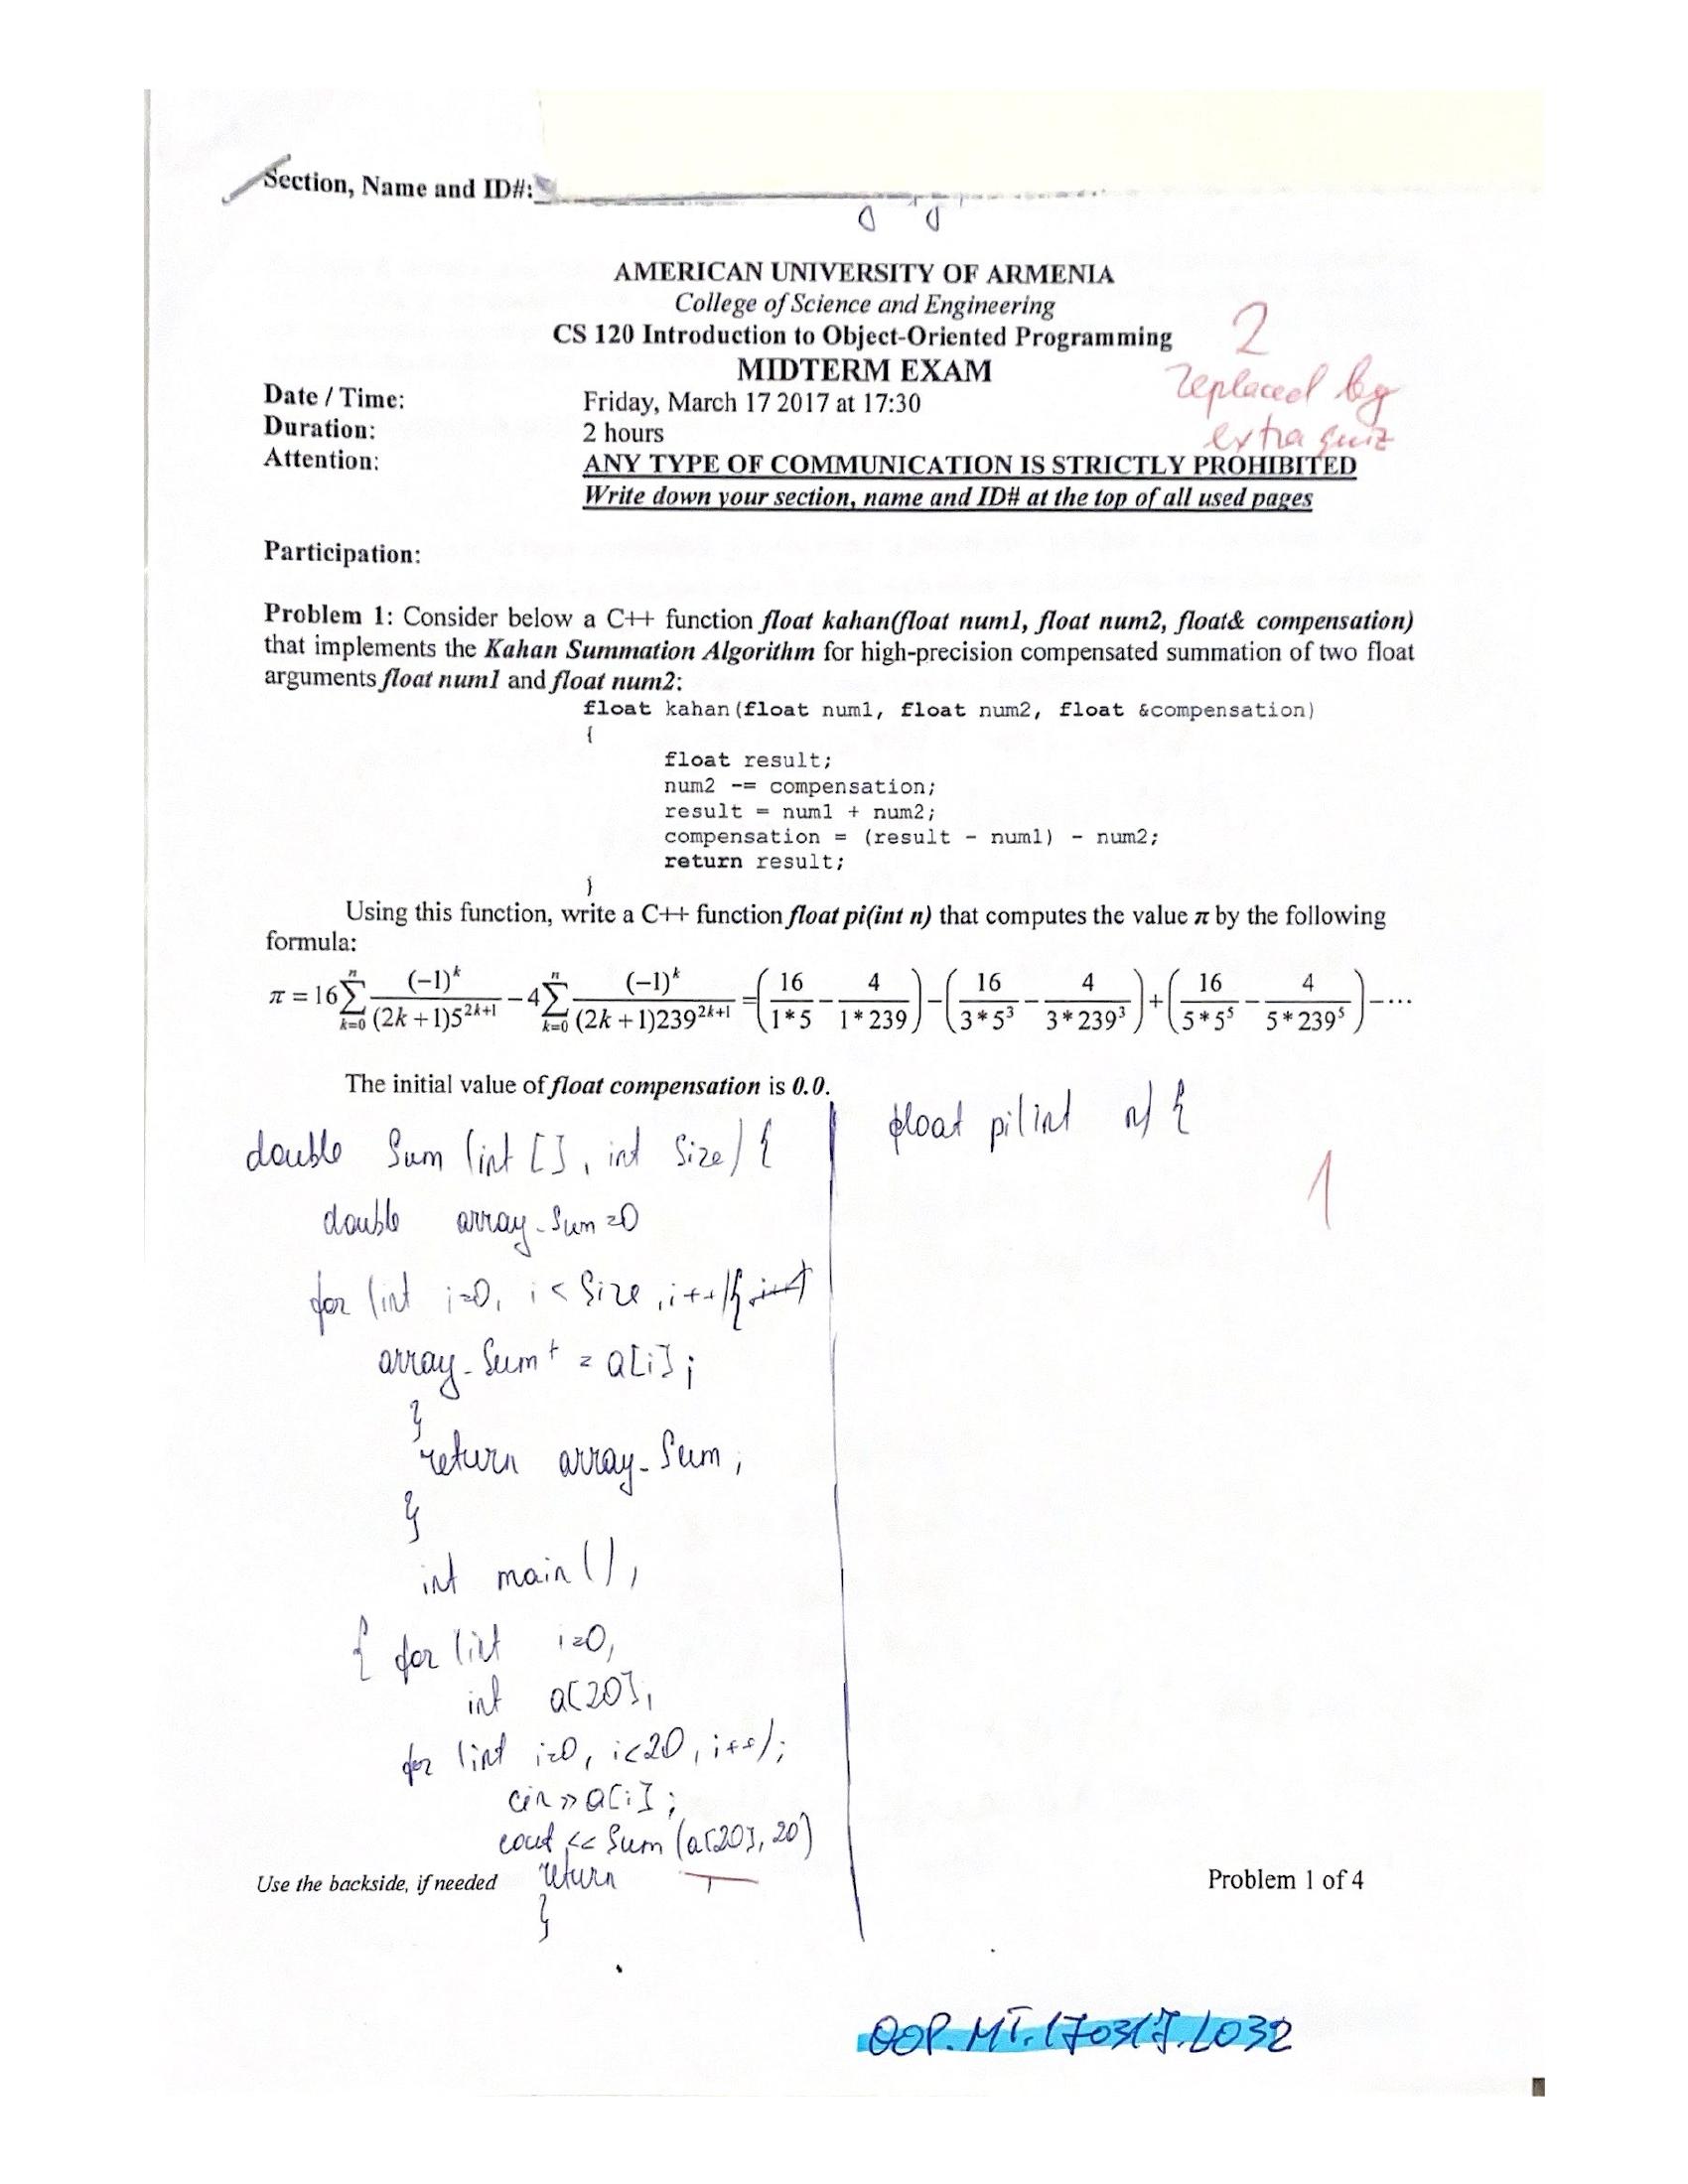 Section, Name and ID#:
AMERICAN UNIVERSITY OF ARMENIA
College of Science and Engineering
CS 120 Introduction to Object-Oriented Programming
MIDTERM EXAM
2
replaced by
extra quiz
Date / Time: Friday, March 17 2017 at 17:30
Duration: 2 hours
Attention: ANY TYPE OF COMMUNICATION IS STRICTLY PROHIBITED
Write down your section, name and ID# at the top of all used pages
Participation:
Problem 1: Consider below a C++ function float kahan(float num1, float num2, float& compensation)
that implements the Kahan Summation Algorithm for high-precision compensated summation of two float
arguments float num1 and float num2:
float kahan(float num1, float num2, float &compensation)
{
float result;
num2 -= compensation;
result = num1 + num2;
compensation = (result - num1) - num2;
return result;
}
Using this function, write a C++ function float pi(int n) that computes the value π by the following
formula:
π = 16 ∑_{k=0}^{n} (-1)^k / ((2k+1)5^{2k+1}) - 4 ∑_{k=0}^{n} (-1)^k / ((2k+1)239^{2k+1}) = (16/(1*5) - 4/(1*239)) - (16/(3*5^3) - 4/(3*239^3)) + (16/(5*5^5) - 4/(5*239^5)) - ...
The initial value of float compensation is 0.0.
double Sum (int [], int Size) {
double array_Sum =0
for (int i=0, i < Size, i++) {
array_Sum + = a[i];
}
return array_Sum,
}
int main(),
{ for (int i=0,
int a[20],
for (int i=0, i<20, i++);
cin >> a[i];
cout << Sum (a[20], 20)
return
}
float pi(int n) {
1
Use the backside, if needed
Problem 1 of 4
OOP.MT.170317.L032